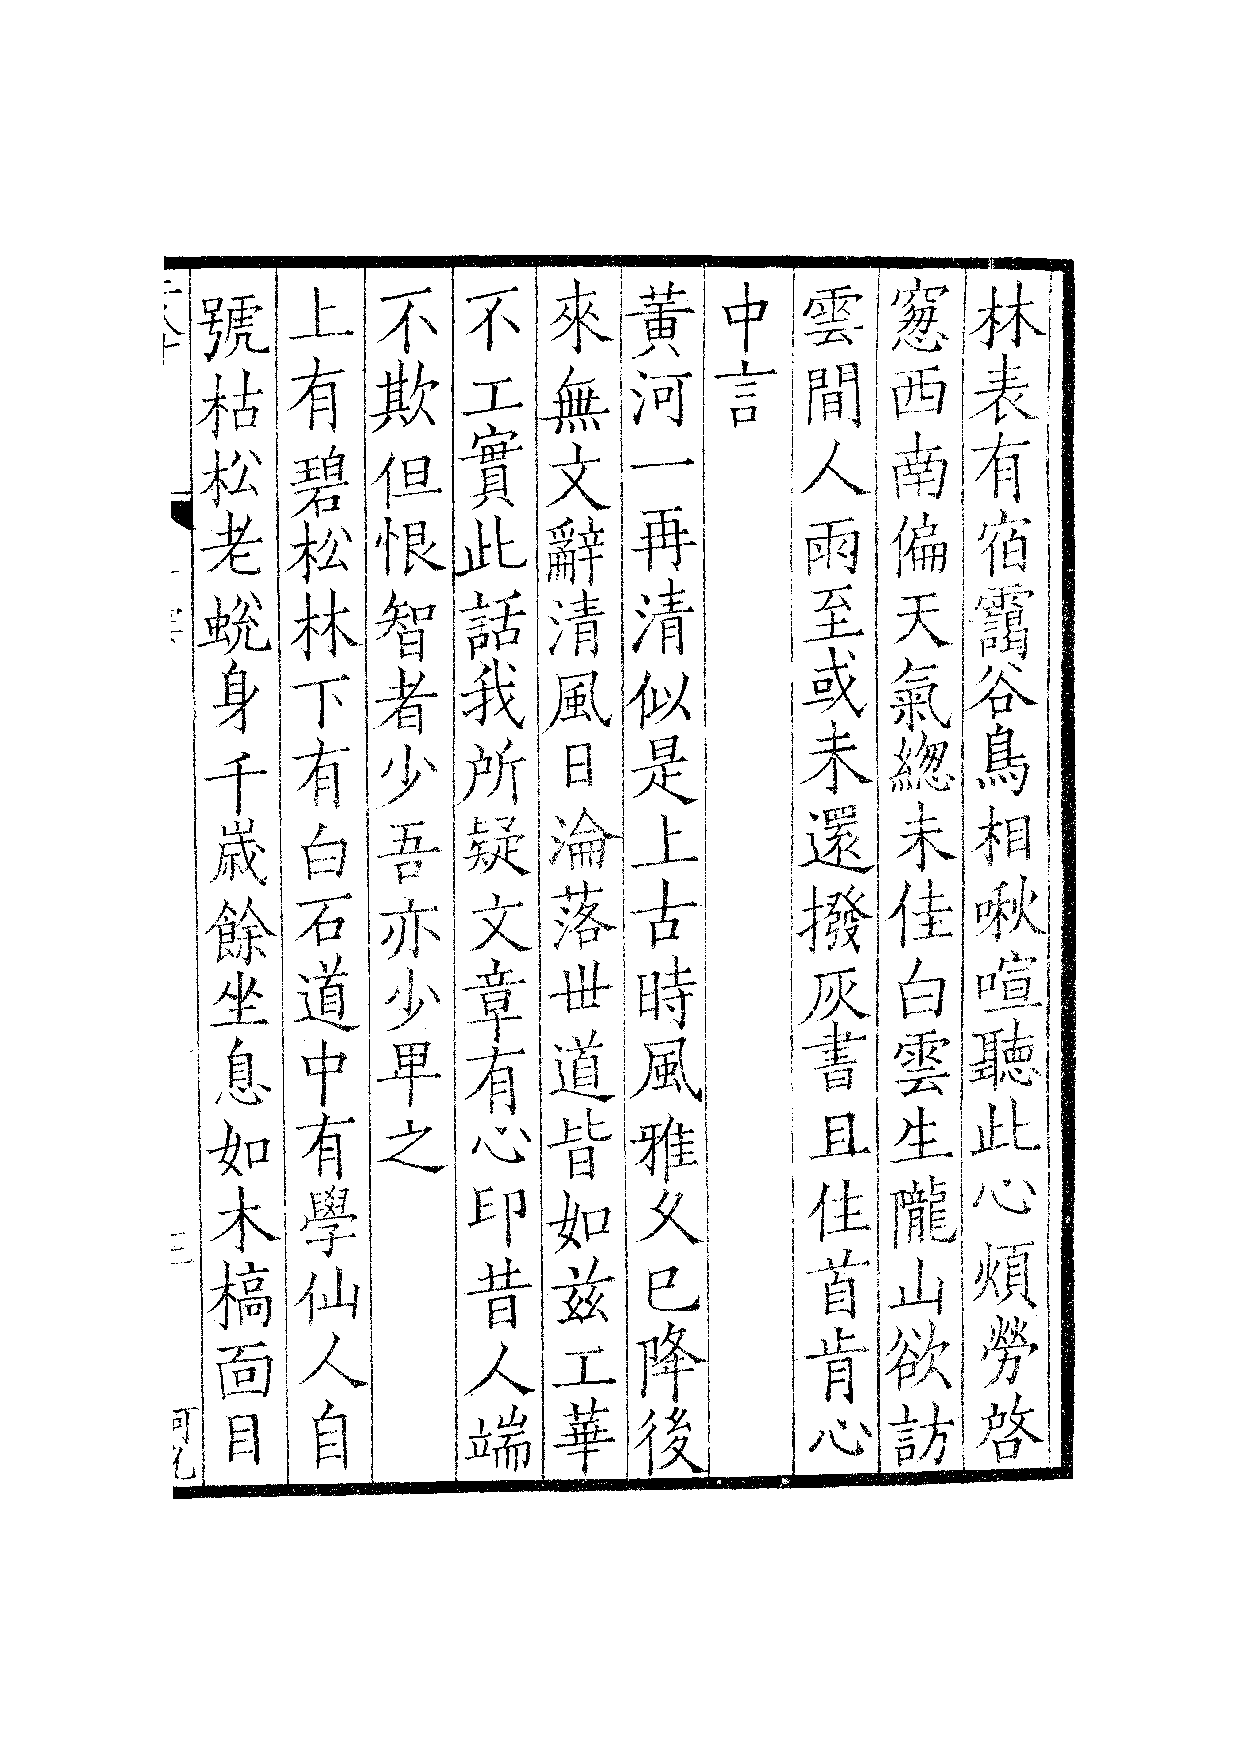 林表有宿靄谷鳥相啾喧聽此心煩勞啓
窻西南偏天氣總未佳白雲生隴山欲訪
雲間人雨至或未還撥灰書且住首肯心
中言
黃河一再清似是上古時風雅久已降後
來無文辭清風日淪落世道皆如兹工華
不工實此話我所疑文章有心印昔人端
不欺但恨智者少吾亦少甲之
上有碧松林下有白石道中有學仙人自
號枯松老蛻身千歲餘坐息如木槁面目